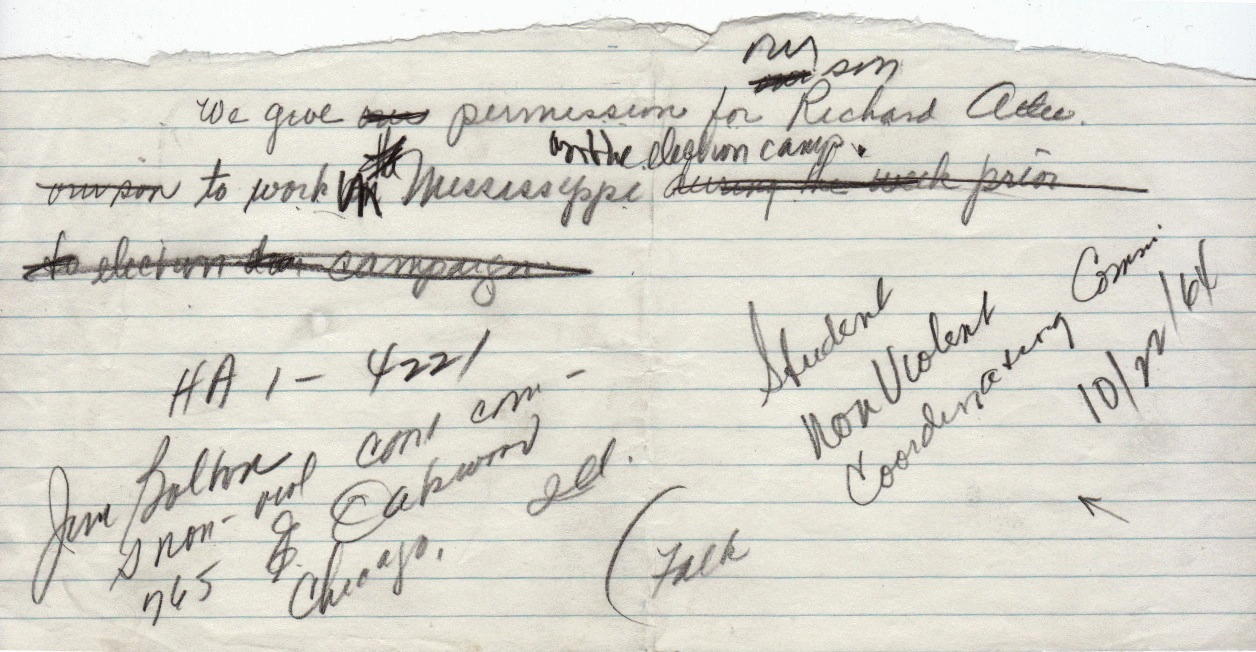 my
our son
We give our permission for Richard Atlee
on the election camp.
our son to work in Mississippi during the week prior
to election campaign
HA 1-4221
Jim Bolton
S non-viol cont com-
765 E. Oakwood
Chicago, Ill.
Student
Non Violent
Coordinating Comm.
10/22/64
(Falk